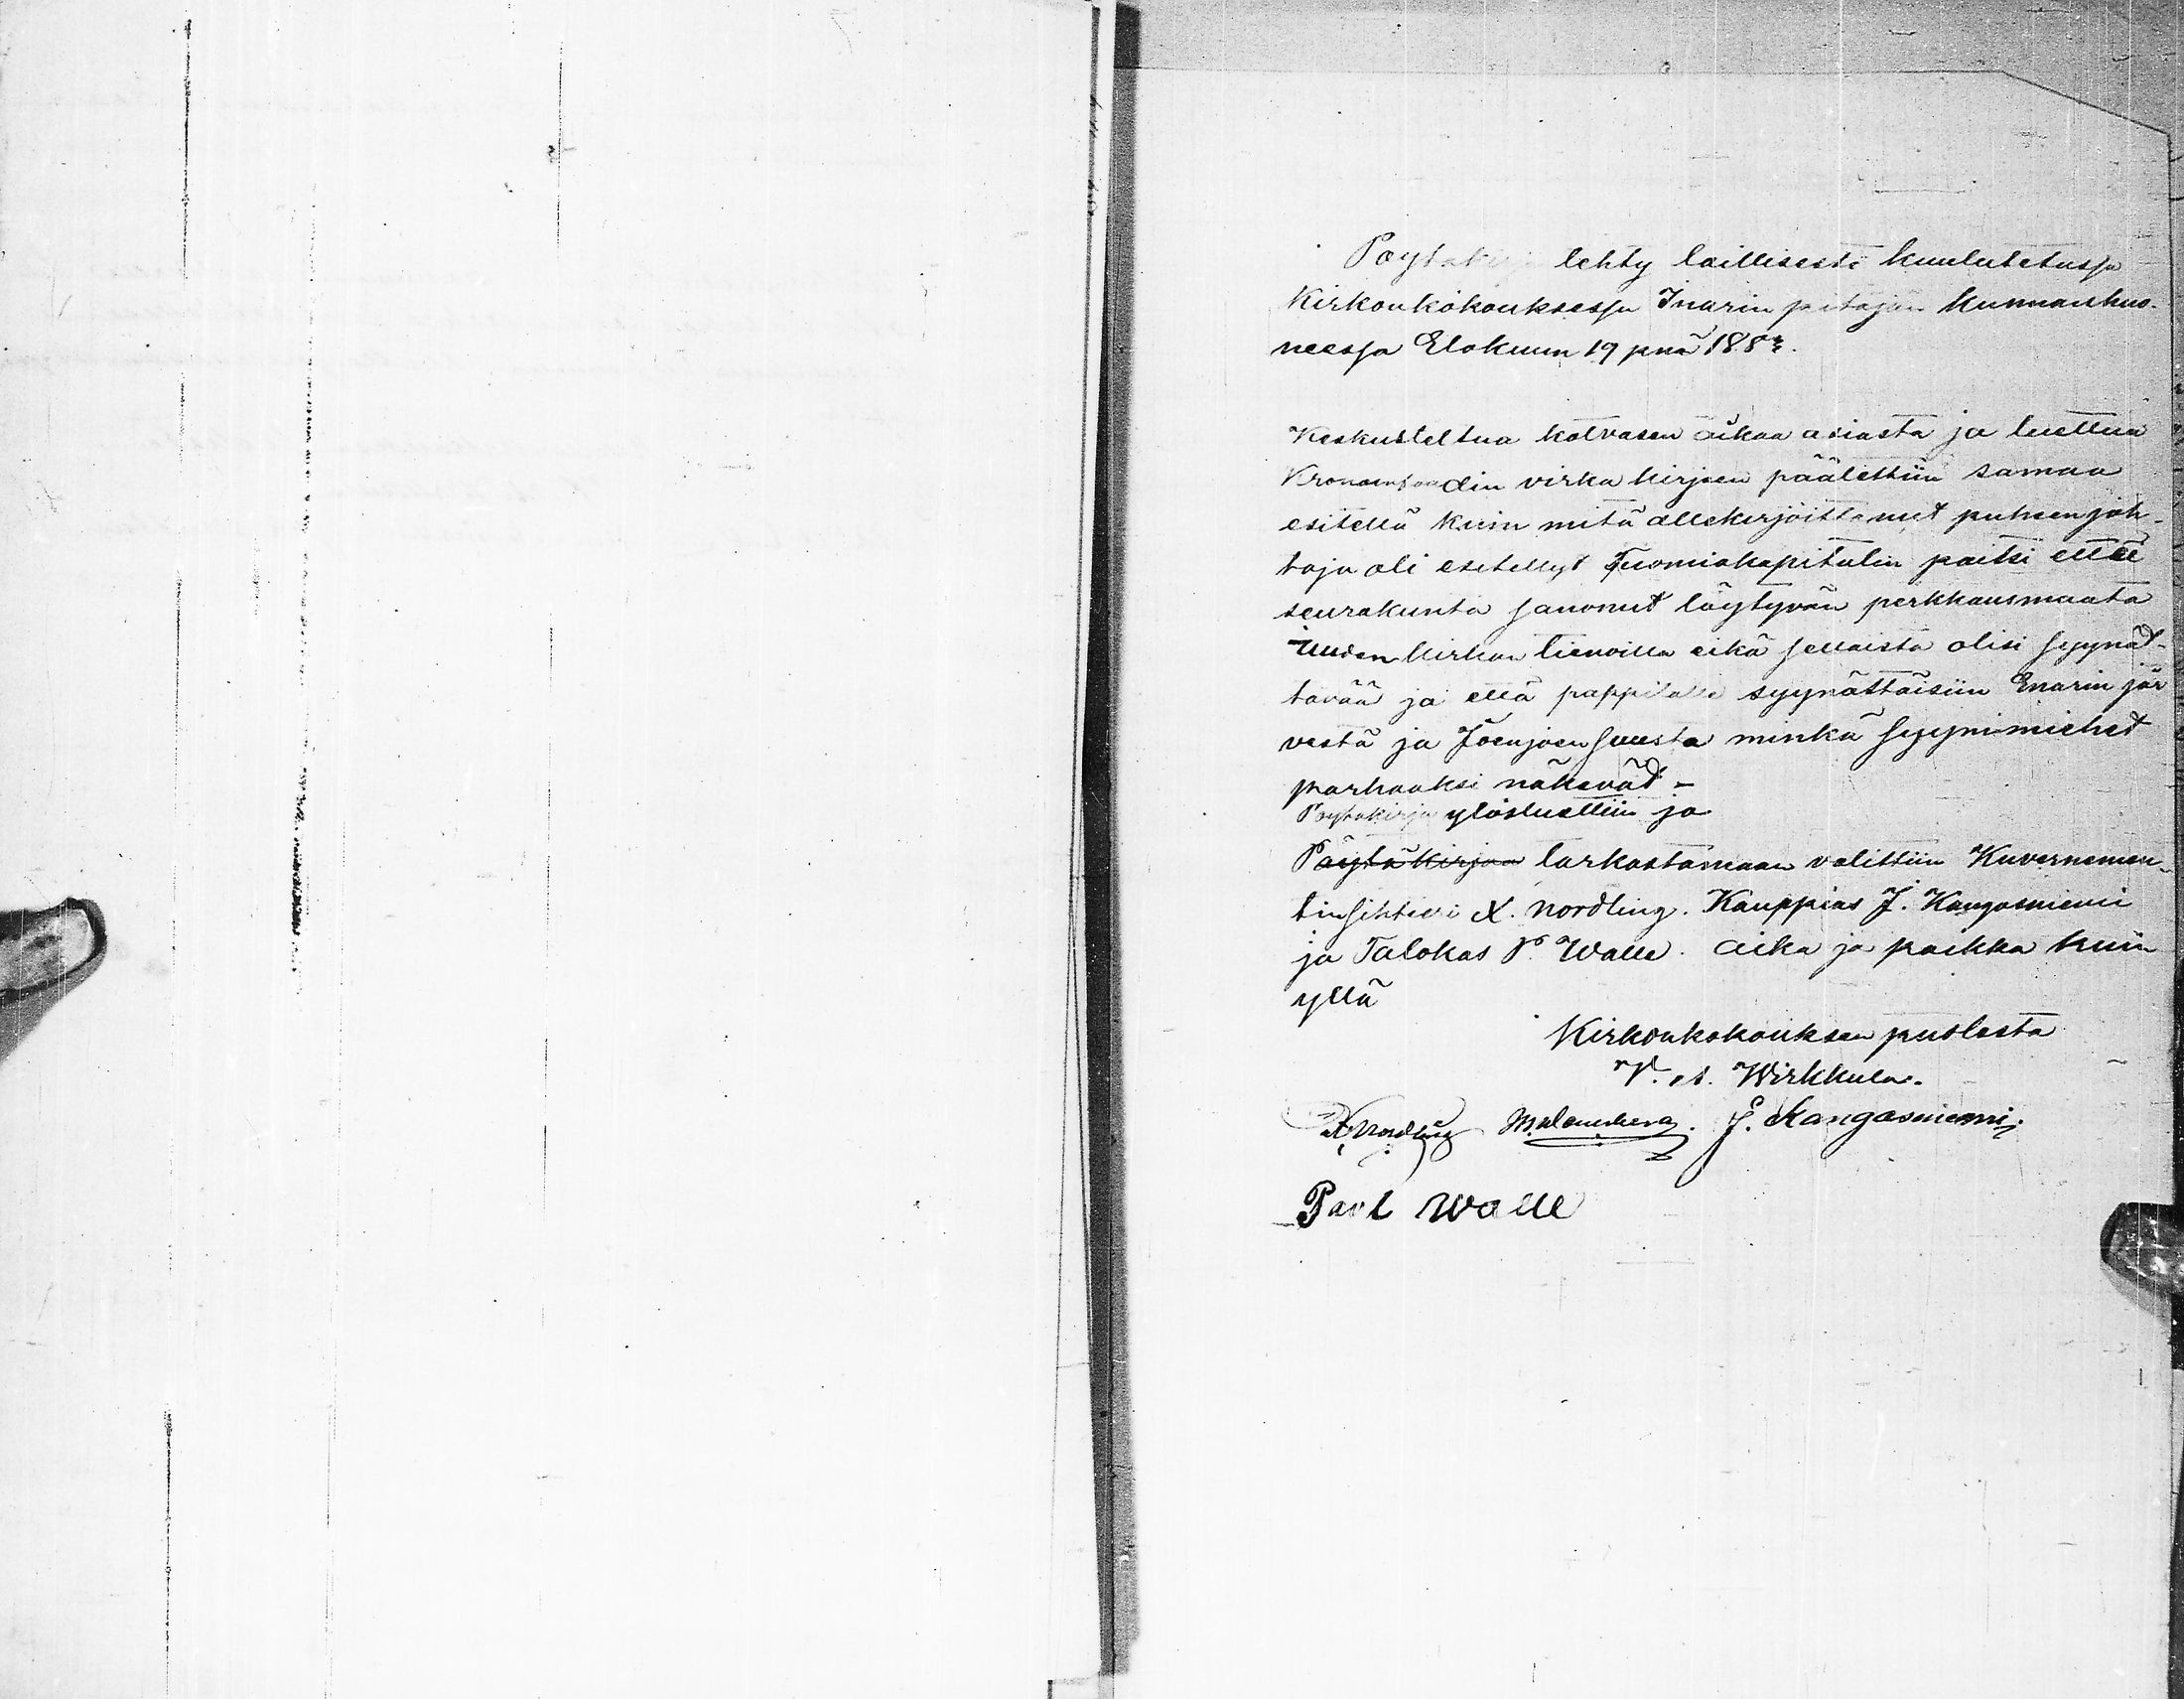 Pöytäkirja tehty laillisesti kuulutetussa
Kirkonkokouksessa Inarin pitäjän kunnanhuo-
neessa Elokuun 19 pnä 1883.
Keskusteltua kotvasen aikaa asiasta ja luettua
Kronovoudin virka kirjeen päätettiin samaa
esitellä kuin mitä allekirjoittanut puheenjoh-
taja oli esitellyt Tuomiokapitulin paitsi että
seurakunta sanonut löytyvän perkkausmaata
Uuden kirkon tienoilla eikä sellaista olisi syynät-
tävää ja että pappila syynättäisiin Enarin jär
vestä ja Joenjoen suusta minkä syynimiehet
parhaaksi näkevät -
Pöytäkirja ylösluettiin ja
Pöytäkirjaa tarkastamaan valittiin Kuvernemen-
tinsihteeri A. Nordling. Kauppias J. Kangasniemi
ja Talokas P. Walle. Aika ja paikka kuin
yllä
Kirkonkokouksen puolesta
V. A. Wirkkula.
A Nordling J. Kangasniemi
Pavl Walle